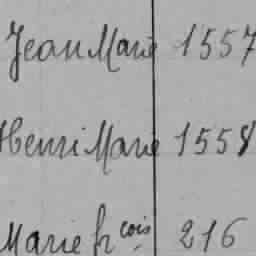 Jean Marie 1557
Henri Marie 1558
Marie fr cois 216